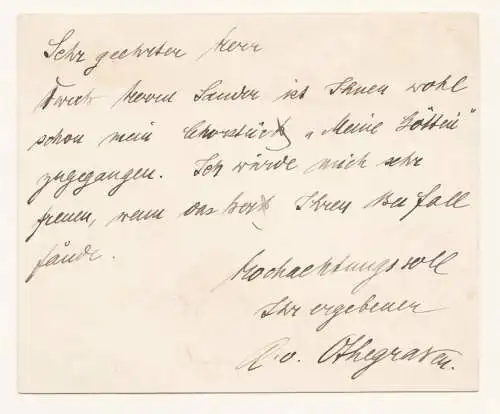 Sehr geehrter Herr
Durch Herrn Sander ist Ihnen wohl
schon mein Chorstück „Meine Göttin"
zugegangen. Ich würde mich sehr
freuen, wenn das Werk Ihren Beifall
fände.
Hochachtungsvoll
Ihr ergebener
A. v. Othegraven.